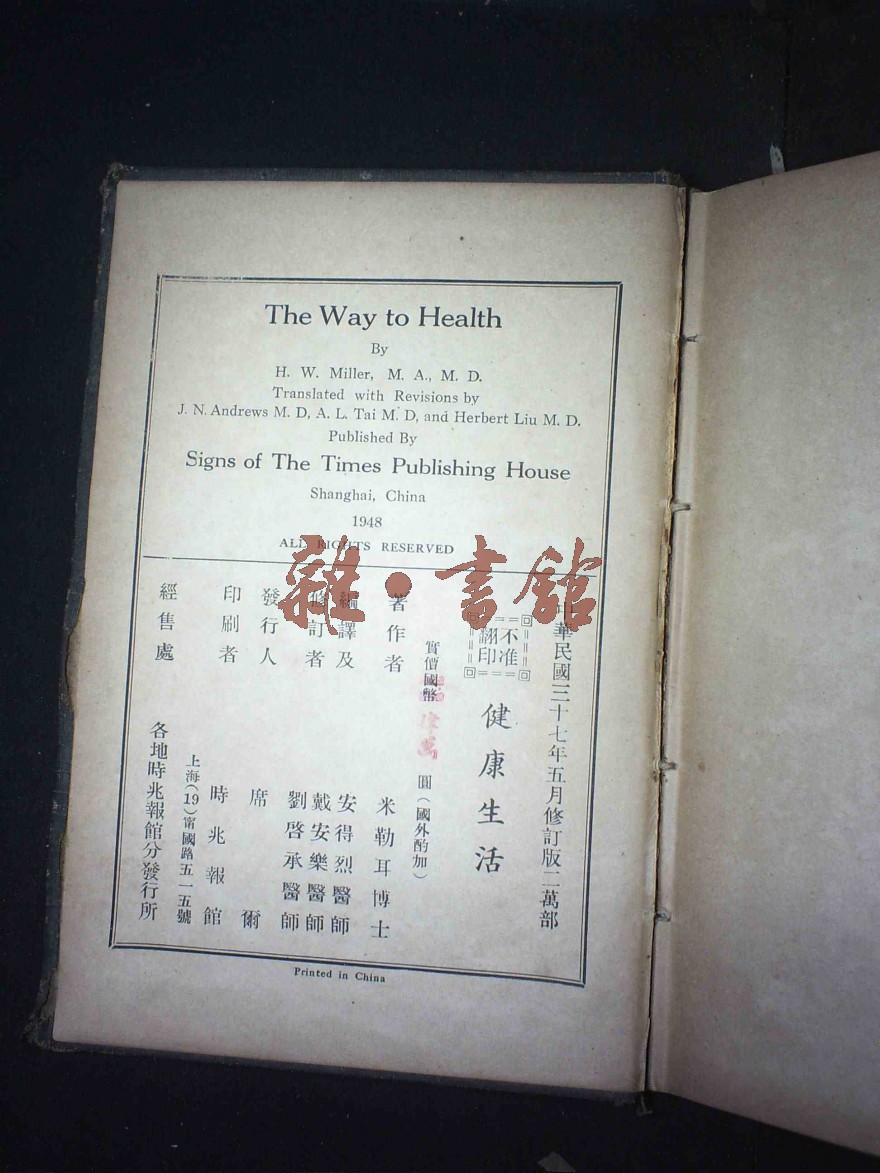 The Way to Health
By
H. W. Miller, M. A., M. D.
Translated with Revisions by
J. N. Andrews M. D, A. L. Tai M. D, and Herbert Liu M. D.
Published By
Signs of The Times Publishing House
Shanghai, China
1948
ALL RIGHTS RESERVED
雜·書館
中華民國三十七年五月修訂版二萬部
不准
翻印
健康生活
實價國幣 圓(國外酌加)
著作者 米勒耳博士
編譯及 安得烈醫師
修訂者 戴安樂醫師
劉啓承醫師
發行人 席爾
印刷者 時兆報館
上海(19)甯國路五一五號
經售處 各地時兆報館分發行所
Printed in China